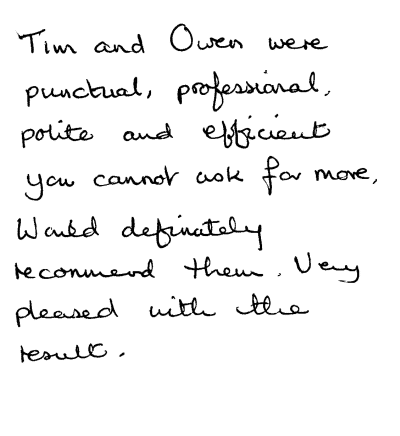 Tim and Owen were
punctual, professional,
polite and efficient
you cannot ask for more,
Would definately
recommend them. Very
pleased with the
result.